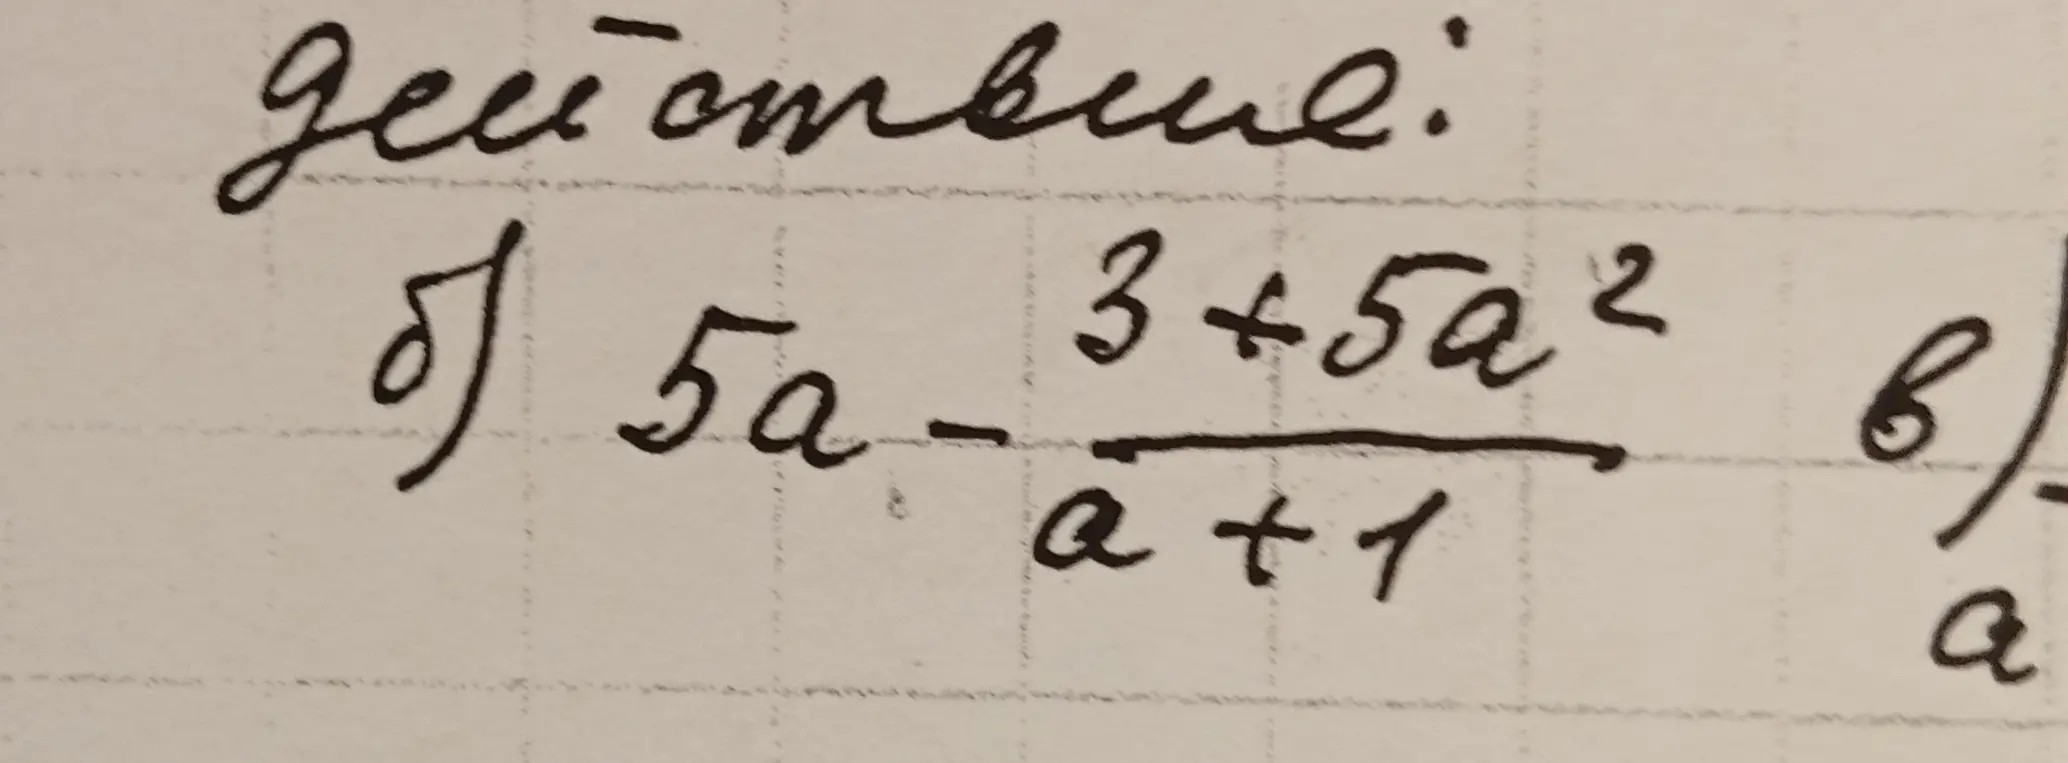 действие:
б) 5a - \frac{3+5a^2}{a+1} в) -
a